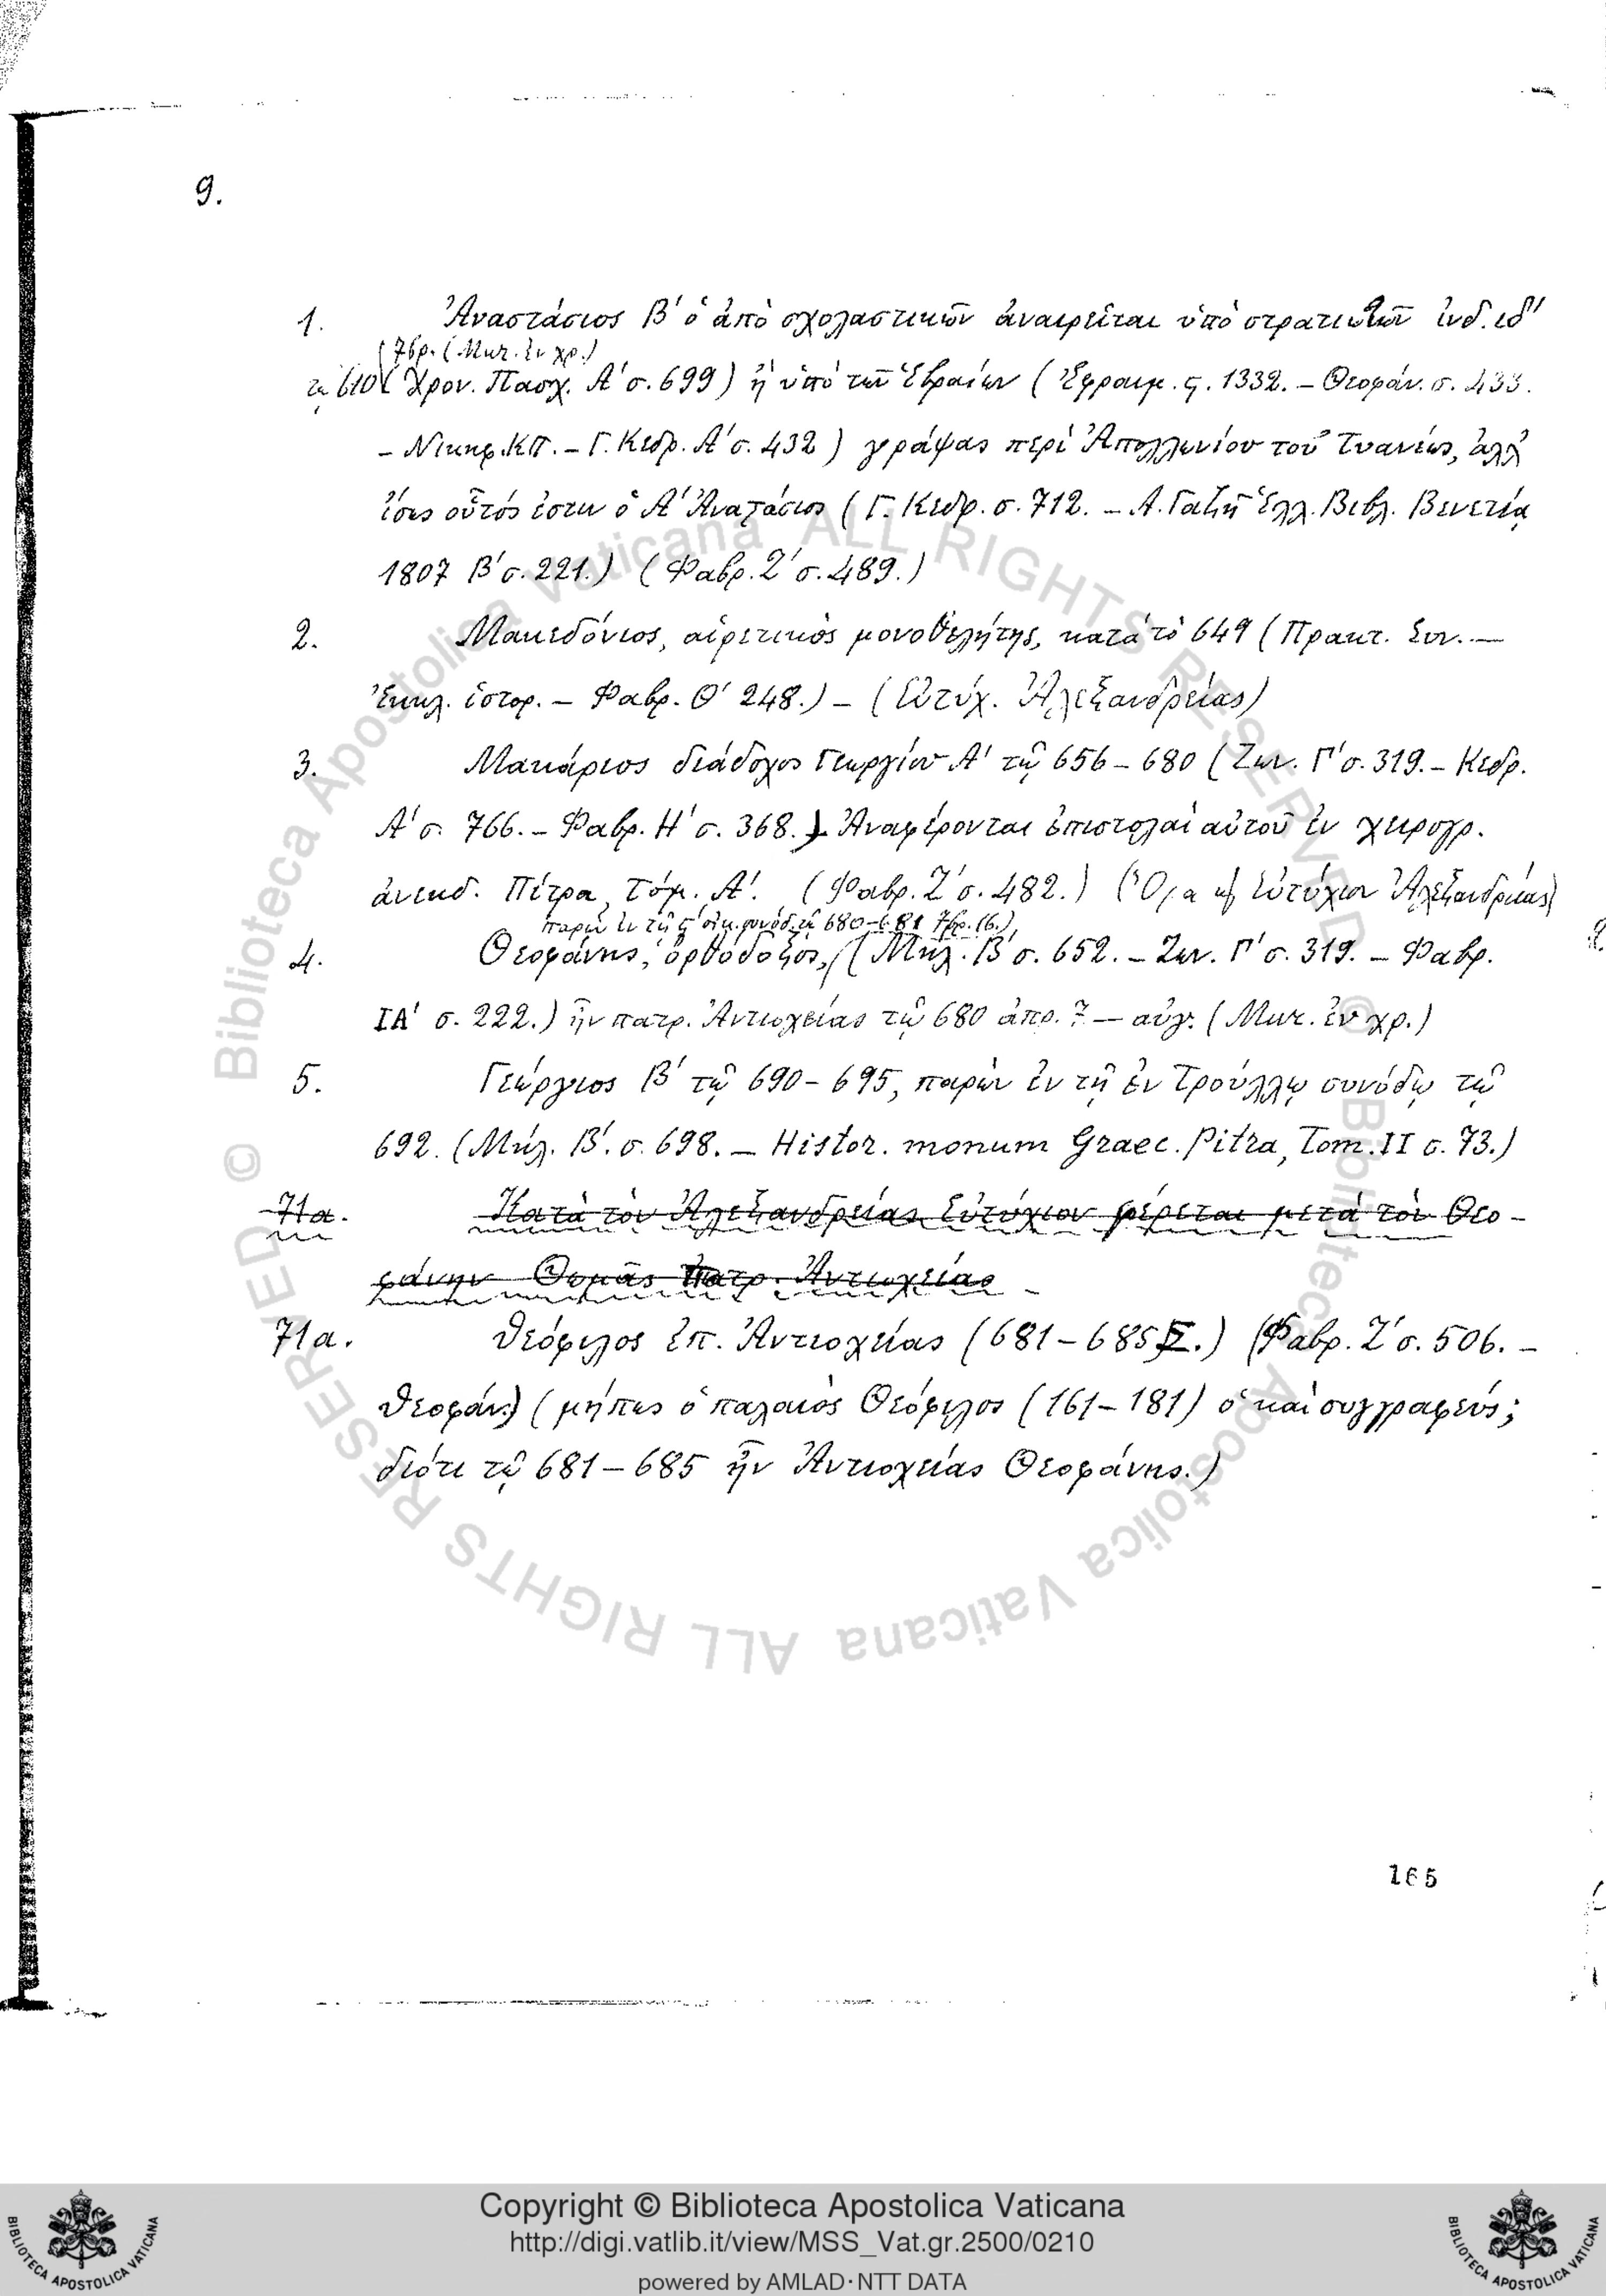 9.
1. Ἀναστάσιος Β΄ ὁ ἀπὸ σχολαστικῶν ἀναιρεῖται ὑπὸ στρατιωτῶν ἰνδ. ιδ΄
7βρ. (Μητ. ἐν χρ.)
τῷ 610 (Χρον. Πασχ. Α΄ σ. 699) ἢ ὑπὸ τῶν Ἑβραίων (Ἐφραιμ. ς. 1332. – Θεοφάν. σ. 433.
– Νικηφ. ΚΠ. – Γ. Κεδρ. Α΄ σ. 432) γράψας περὶ Ἀπολλωνίου τοῦ Τυανέως, ἀλλ'
ἴσως οὗτός ἐστιν ὁ Α΄ Ἀναστάσιος (Γ. Κεδρ. σ. 712. – Α. Γαζῆ Ἑλλ. Βιβλ. Βενετίᾳ
1807 Β΄ σ. 221.) (Φαβρ. Ζ΄ σ. 489.)
2. Μακεδόνιος, αἱρετικὸς μονοθελήτης, κατὰ τὸ 649 (Πρακτ. Συν. –
Ἐκκλ. ἱστορ. – Φαβρ. Θ΄ 248.) – (Εὐτύχ. Ἀλεξανδρείας)
3. Μακάριος διάδοχος Γεωργίου Α΄ τῷ 656 – 680 (Ζων. Γ΄ σ. 319. – Κεδρ.
Α΄ σ. 766. – Φαβρ. Η΄ σ. 368.) Ἀναφέρονται ἐπιστολαὶ αὐτοῦ ἐν χειρογρ.
ἀνεκδ. Πίτρα, Τόμ. Α΄. (Φαβρ. Ζ΄ σ. 482.) (Ὅρα κ Εὐτύχιον Ἀλεξανδρείας)
παρὼν ἐν τῇ ς΄ οἰκ. συνόδ. τῷ 680–681 7βρ. 16.),
4. Θεοφάνης, ὀρθόδοξος, (Μηλ. Β΄ σ. 652. – Ζων. Γ΄ σ. 319. – Φαβρ.
ΙΑ΄ σ. 222.) ἦν πατρ. Ἀντιοχείας τῷ 680 ἀπρ. 7 – αὐγ. (Μητ. ἐν χρ.)
5. Γεώργιος Β΄ τῷ 690 – 695, παρὼν ἐν τῇ ἐν Τρούλλῳ συνόδῳ τῷ
692. (Μηλ. Β΄. σ. 698. – Histor. monum Graec. Pitra, Tom. II σ. 73.)
71α. Κατὰ τὸν Ἀλεξανδρείας Εὐτύχιον φέρεται μετὰ τὸν Θεο-
φάνην Θωμᾶς Πατρ. Ἀντιοχείας
71α. Θεόφιλος ἐπ. Ἀντιοχείας (681 – 685 Σ.) (Φαβρ. Ζ΄ σ. 506. –
Θεοφάν.) (μήπως ὁ παλαιὸς Θεόφιλος (161 – 181) ὁ καὶ συγγραφεύς;
διότι τῷ 681 – 685 ἦν Ἀντιοχείας Θεοφάνης.)
165
© Biblioteca Apostolica Vaticana ALL RIGHTS RESERVED © Biblioteca Apostolica Vaticana ALL RIGHTS RESERVED
Copyright © Biblioteca Apostolica Vaticana
http://digi.vatlib.it/view/MSS_Vat.gr.2500/0210
powered by AMLAD·NTT DATA
BIBLIOTECA APOSTOLICA VATICANA
BIBLIOTECA APOSTOLICA VATICANA